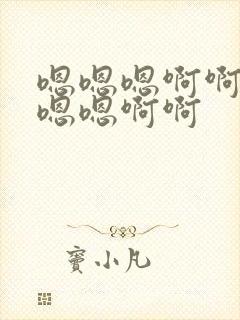 嗯嗯嗯啊啊
嗯嗯啊啊
窦小凡